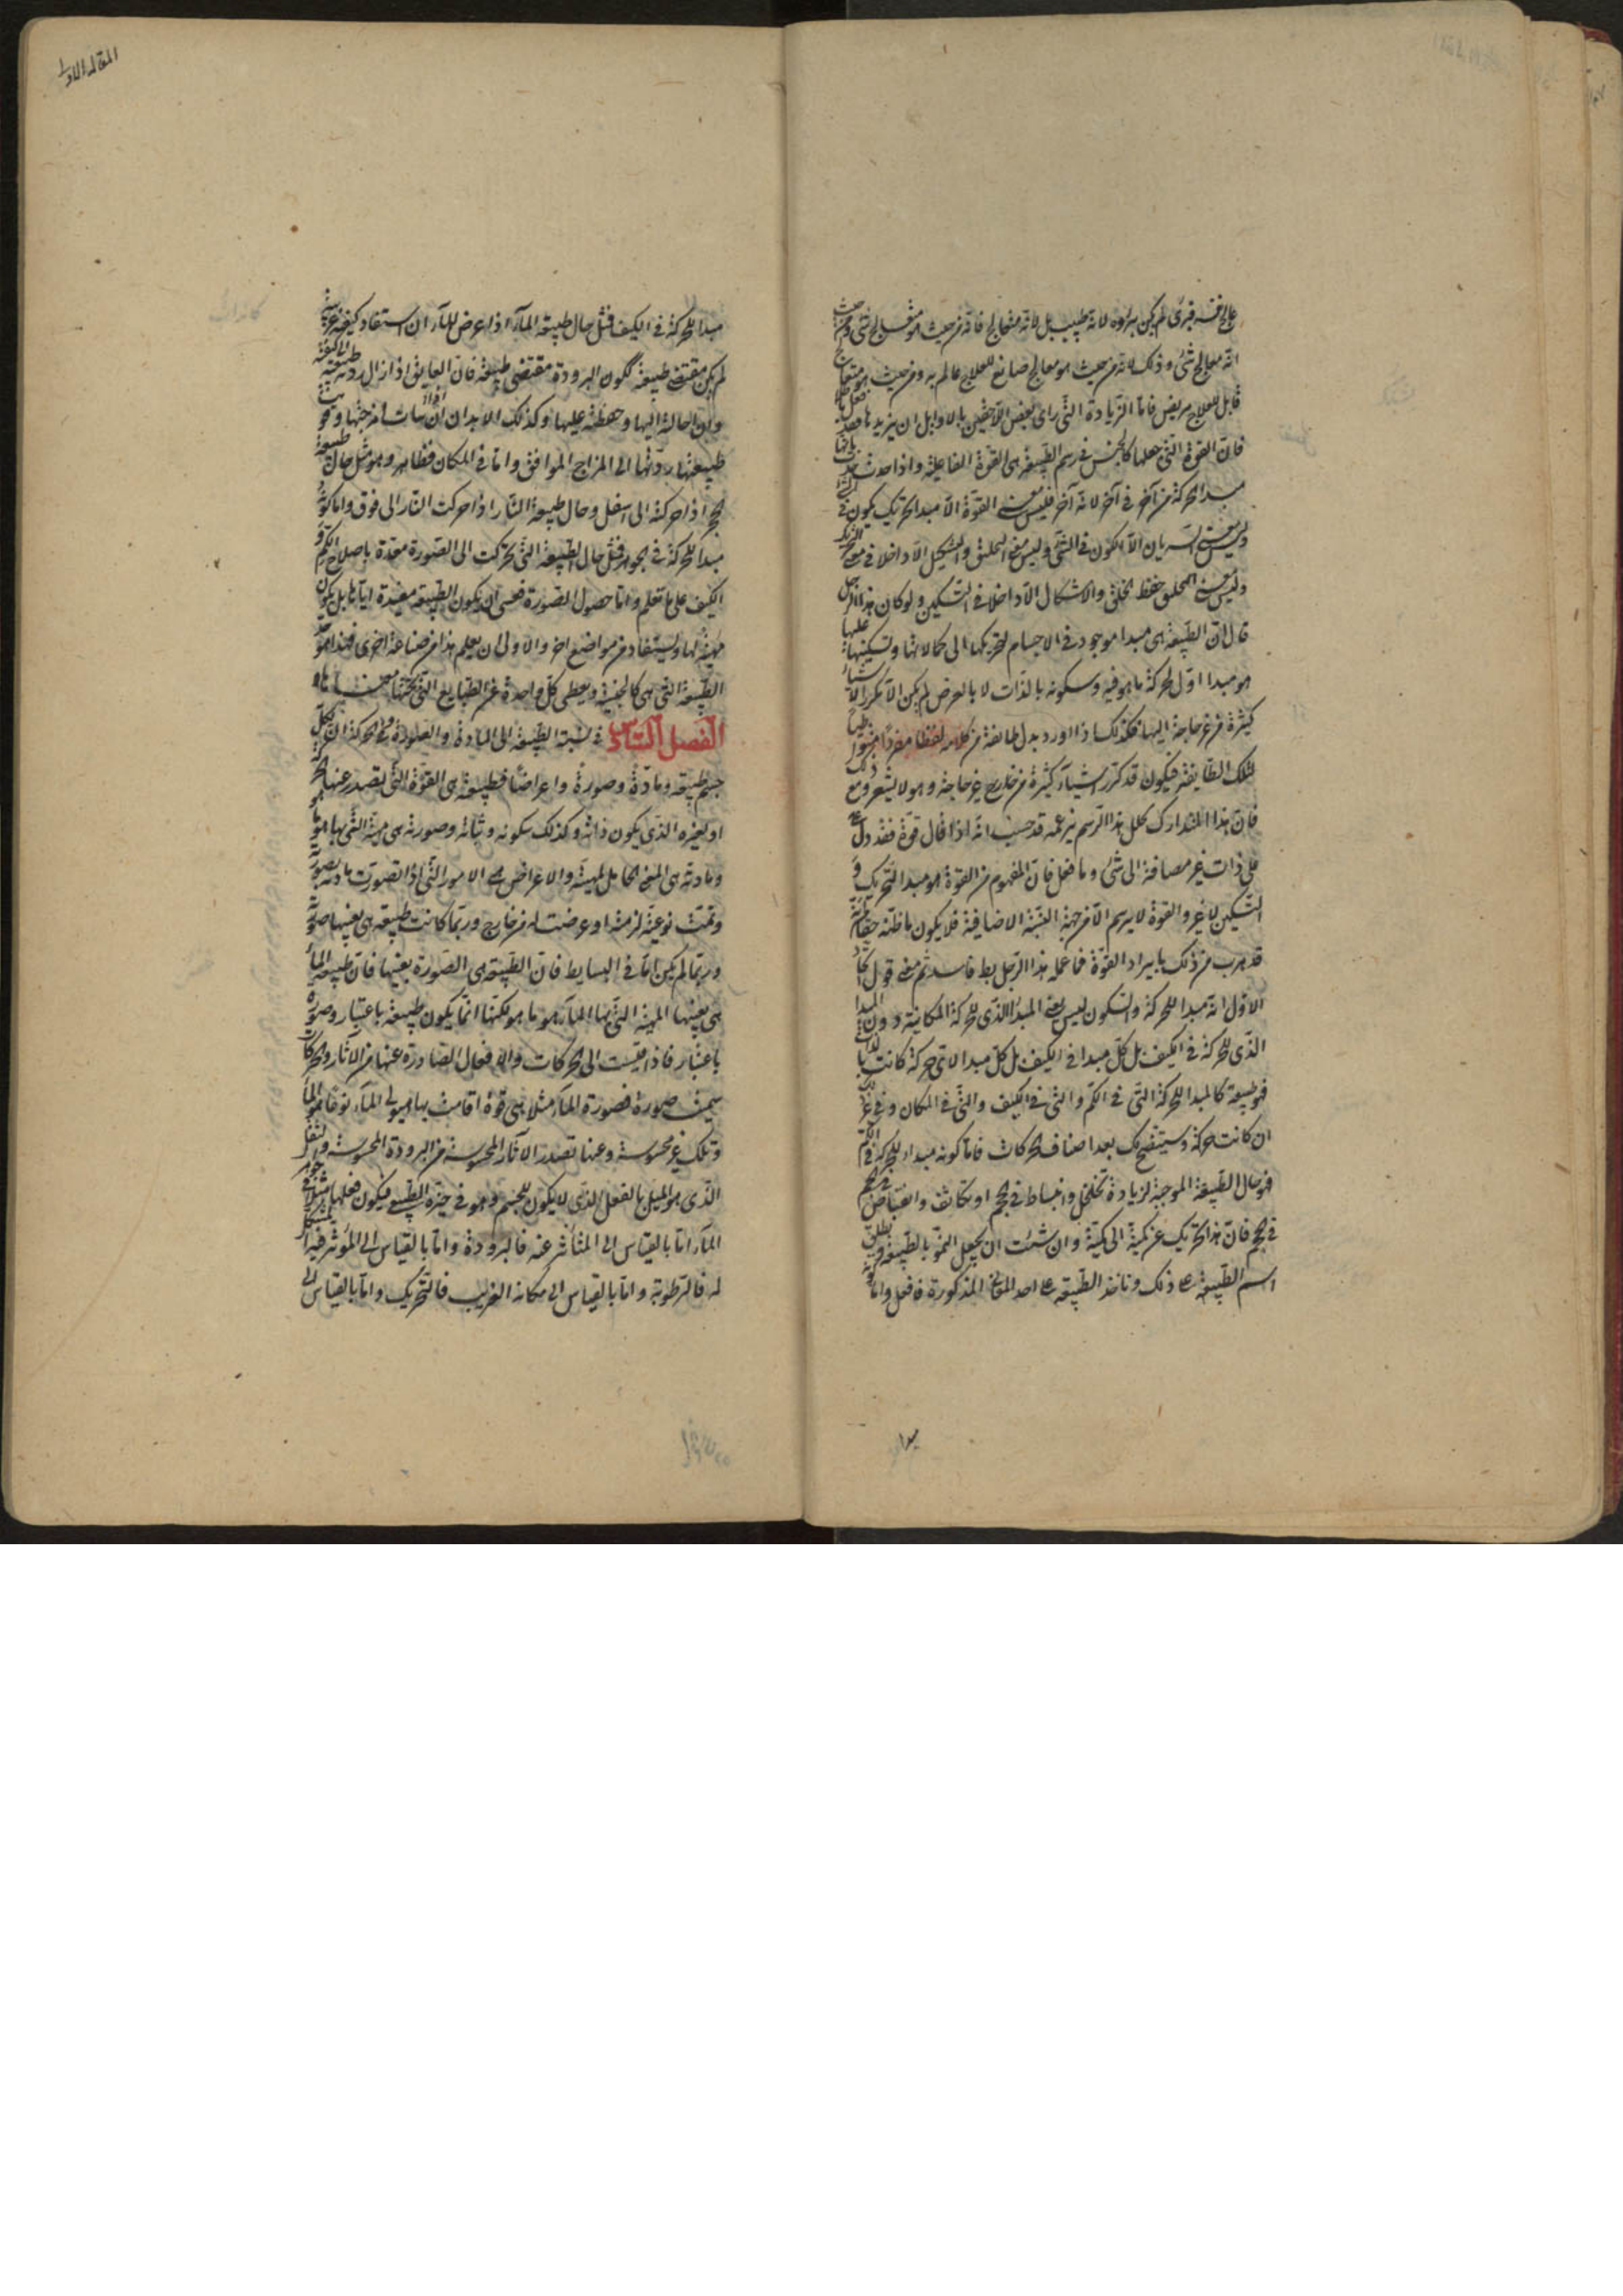 عالج نفسه فبرئ لم يكن برؤه لانه طبيب بل لانه متعالج فانه من حيث هو معالج شئ ومن حيث
انه معالج شئ وذلك لانه من حيث هو معالج صانع للعلاج عالم به ومن حيث هو متعالج
قابل للعلاج مريض فاما الزيادة التى راى بعض اللاحقين بالاوايل ان يزيدها فقد فعل باطلا
فان القوة التى جعلها كالجنس فى رسم الطبيعة هى القوة الفاعلية واذا حدت حدت بانها
مبدا الحركة من آخر فى آخر لانه آخر فليس معنى القوة الا مبدا تحريك يكون فى الشئ
وليس معنى السريان الا الكون فى الشئ وليس معنى التخليق والتشكيل الا داخلا فى معنى التحريك
وليس معنى حفظ الخلق والاشكال الا داخلا فى التسكين ولو كان هذا الرجل
قال ان الطبيعة هى مبدا موجود فى الاجسام لتحريكها الى كمالاتها وتسكينها عليها
هو مبدا اول لحركة ما هو فيه وسكونه بالذات لا بالعرض لم يكن الا مكررا لاشياء
كثيرة من غير حاجة اليها فكذلك اذا اورد بدل طائفة من كلامه لفظا مفردا متواطئا
لتلك الطايفة فيكون قد كرر اشياء كثيرة من خارج غير حاجة وهو لا يشعر ومع ذلك
فان هذا المتدارك لخلل هذا الرسم بزعمه قد حسب انه اذا قال قوة فقد دل
على ذات غير مضافة الى شئ وما فعل فان المفهوم من القوة هو مبدا التحريك و
التسكين لا غير والقوة لا يرسم الا من جهة النسبة الاضافية فلا يكون ما ظنه حقا من انه
قد هرب من ذلك بايراد القوة فما عمله هذا الرجل بط فاسد ثم معنى قول الحد
الاول انه مبدا للحركة والسكون ليس يعنى المبدا الذى للحركة المكانية دون المبدا
الذى للحركة فى الكيف بل كل مبدا فى الكيف بل كل مبدا لاى حركة كانت بالذات
فهو طبيعة كالمبدا للحركة التى فى الكم والتى فى الكيف والتى فى المكان وفى غير ذلك
ان كانت حركة وسيتضح لك بعد اصناف الحركات فاما كونه مبدا للحركة فى الكم
فهو حال الطبيعة الموجبة لزيادة تخلخل وانبساط فى الحجم او تكاثف وانقباض
فى الحجم فان هذا تحريك عن كمية الى كمية وان شئت ان يجعل النمو بالطبيعة و يطلق
اسم الطبيعة على ذلك وتاخذ الطبيعة على احد المعانى المذكورة فافعل واما كونه
مبدا
المقالة الاولى
مبدا للحركة فى الكيف فمثل حال طبيعة الماء اذا عرض للماء ان استفاد كيفية غريبة
لم يكن مقتضى طبيعته لكون البرودة مقتضى طبيعته فان العايق اذا زال ردته طبيعته الى كيفيته
واحالته اليها وحفظته عليها وكذلك الابدان اذا ساءت امزجتها وقويت
طبيعتها ردتها الى المزاج الموافق واما فى المكان فظاهر وهو مثل حال طبيعة
الحجر اذا حركته الى اسفل وحال طبيعة النار اذا حركت النار الى فوق واما كونه
مبدا للحركة فى الجوهر فمثل حال الطبيعة التى تحركت الى الصورة معدة باصلاح الكم و
الكيف على ما تعلم واما حصول الصورة فعسى ان يكون الطبيعة مفيدة اياها بل يكون
مهيئة لها ويستفاد من مواضع اخر والاولى ان يعلم هذا من صناعة اخرى فهذا هو حد
الطبيعة التى هى كالجنسية ويعطى كل واحدة من الطبايع التى تحتها معناها
الفصل السادس فى نسبة الطبيعة الى المادة والصورة والحركة ان لكل
جسم طبيعة ومادة وصورة واعراضا فطبيعته هى القوة التى يصدر عنها تحركه
او تغيره الذى يكون من ذاته وكذلك سكونه وثباته وصورته هى مهيته التى بها هو ما هو
ومادته هى المعنى الحامل لمهيته والاعراض هى الامور التى اذا تصورت مادته بصورته
وتمت نوعيته لزمته او عرضت له من خارج وربما كانت طبيعته هى بعينها صورته
وربما لم يكن اما فى البسايط فان الطبيعة هى الصورة بعينها فان طبيعة الماء
هى بعينها المهية التى بها الماء هو ما هو لكنها انما يكون طبيعة باعتبار وصورة
باعتبار فاذا قيست الى الحركات والافعال الصادرة عنها من الآثار والحركات
سميت صورة فصورة الماء مثلا هى قوة اقامت بها هيولى الماء نوعا هو الماء
وتلك غير محسوسة وعنها تصدر الآثار المحسوسة من البرودة المحسوسة والثقل
الذى هو الميل بالفعل الذى لا يكون للجسم وهو فى حيزه الطبيعى فيكون فعلها مثلا فى جوهر
الماء اما بالقياس الى المتاثر عنه فالبرودة واما بالقياس الى الموثر فيه المشكل
له فالرطوبة واما بالقياس الى مكانه الغريب فالتحريك واما بالقياس الى